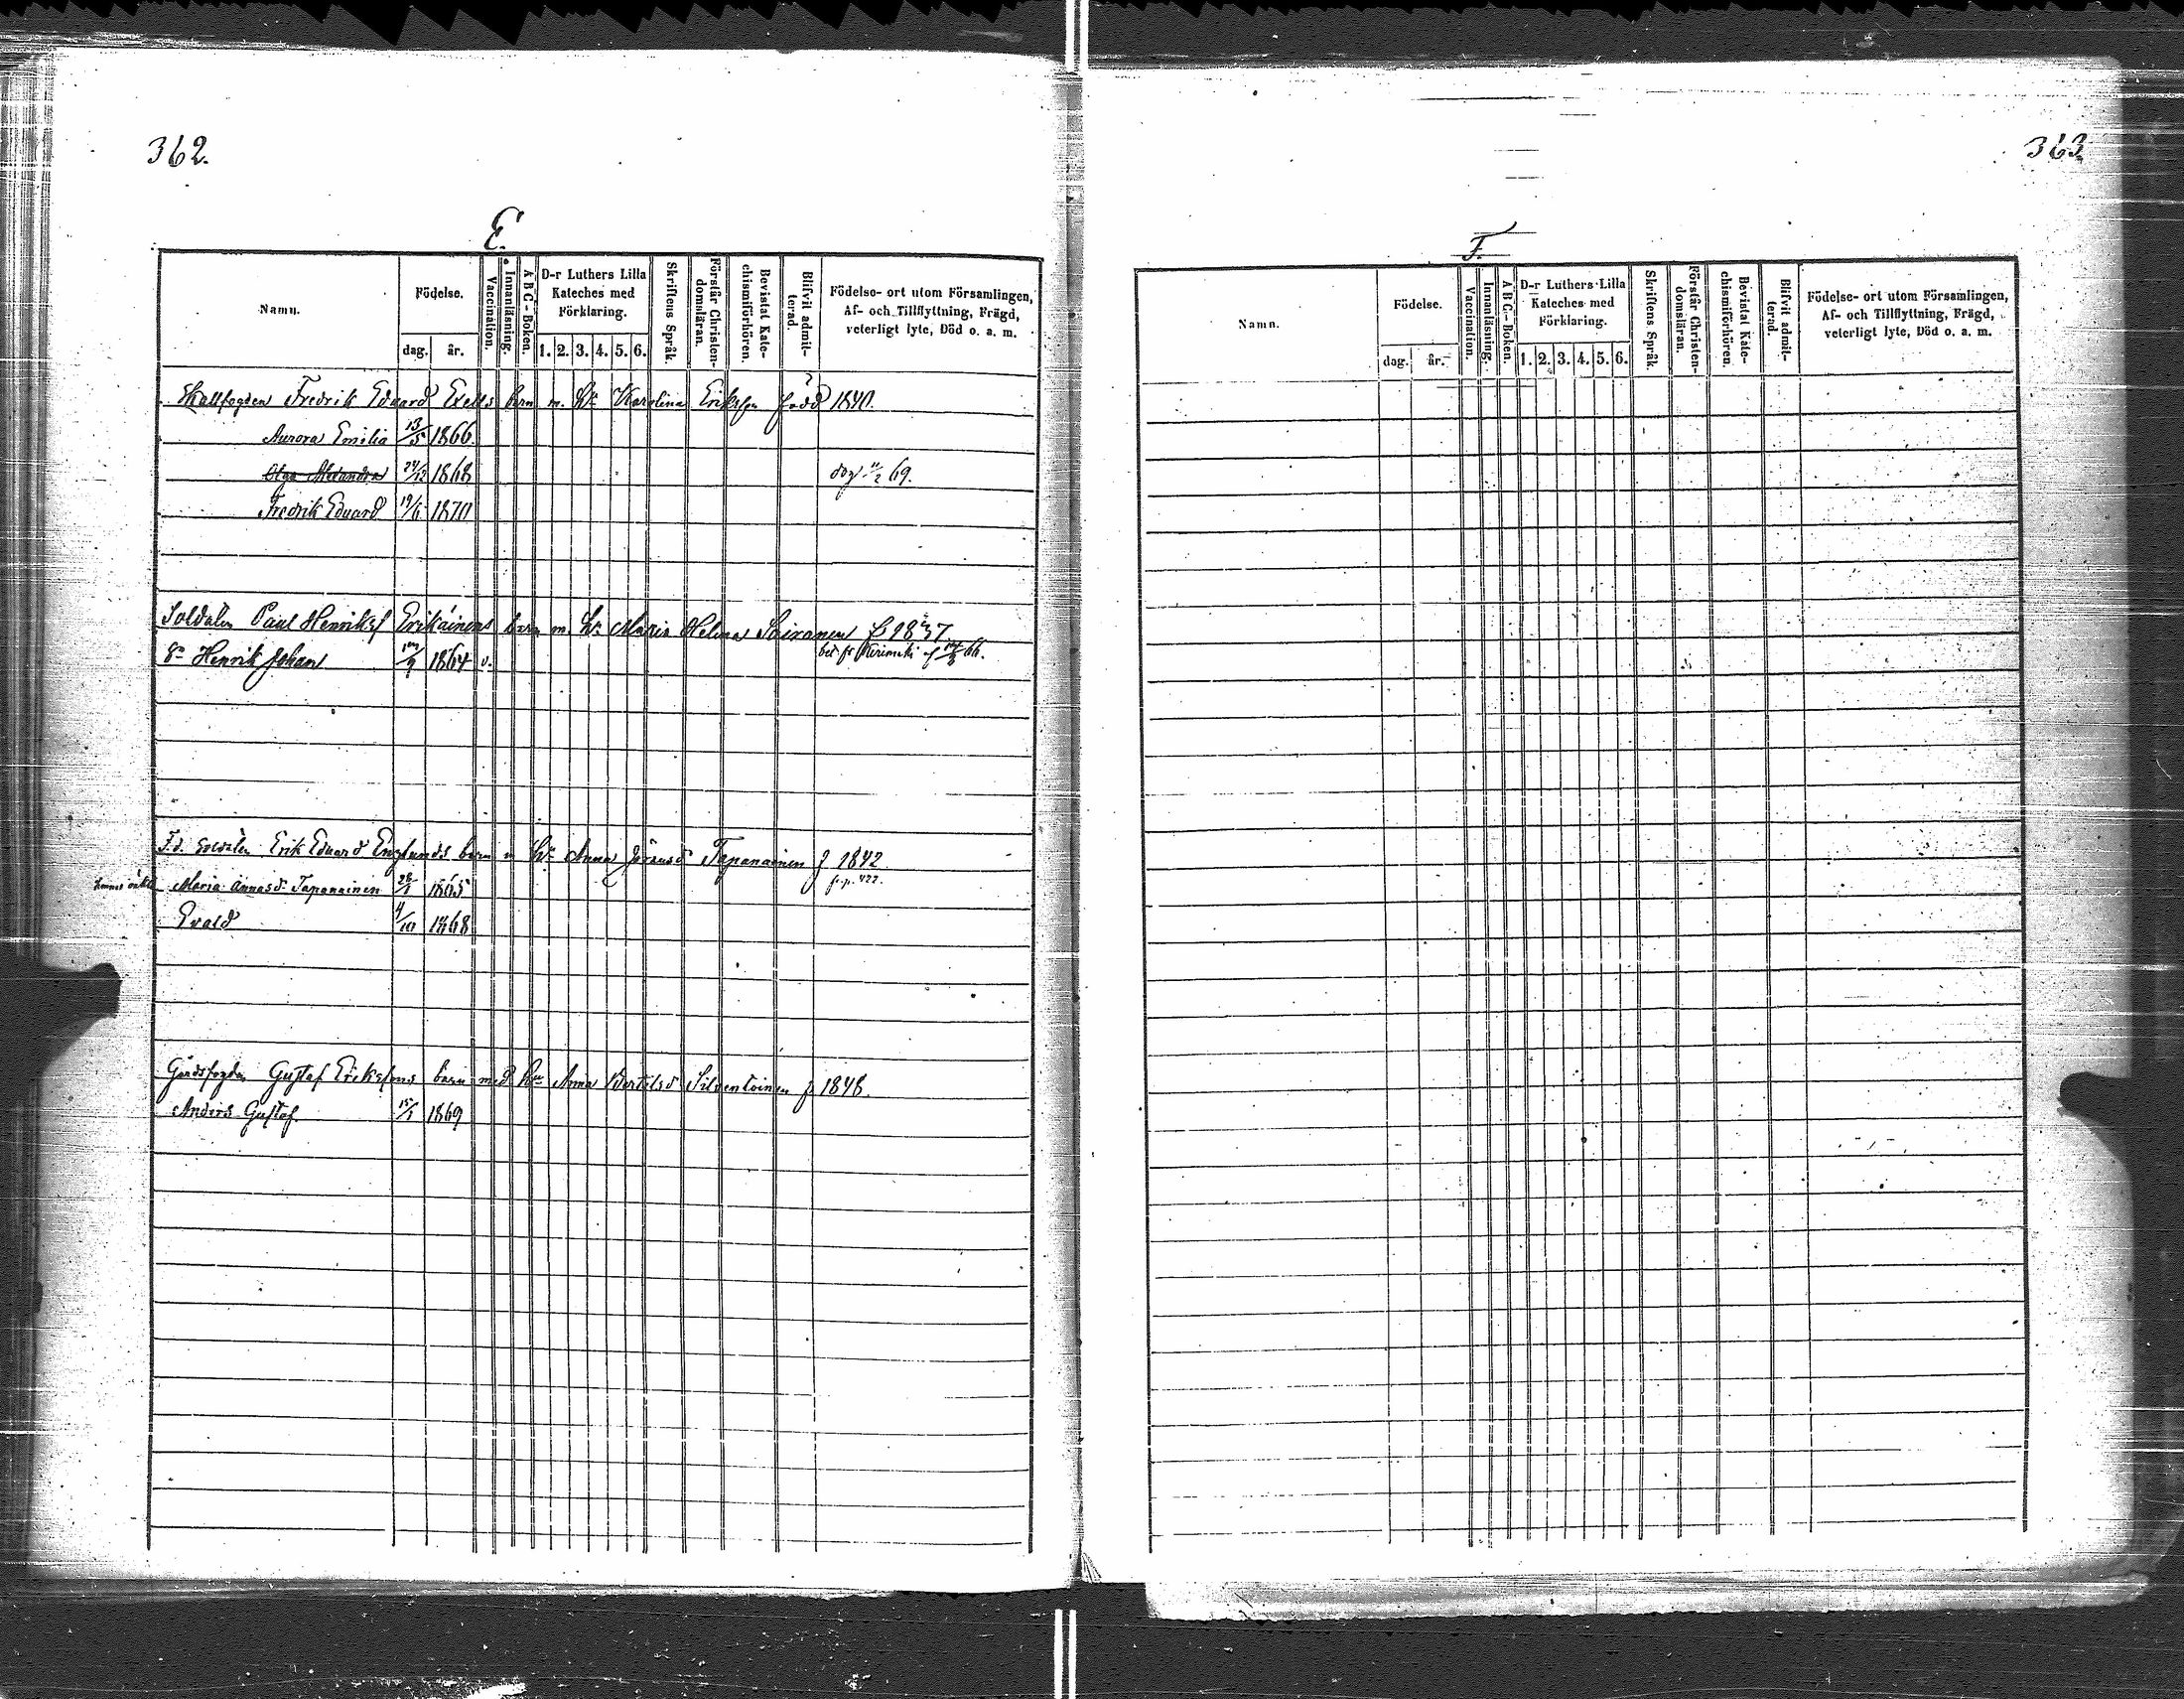 362.
E.
Namn.
Födelse.
dag. år.
Vaccination.
Innanläsning.
A B C - Boken.
D-r Luthers Lilla
Kateches med
Förklaring.
1. 2. 3. 4. 5. 6.
Skriftens Språk.
Förstår Christen-
domsläran.
Bevistat Kate-
chismiförhören.
Blifvit admit-
terad.
Födelse- ort utom Församlingen,
Af- och Tillflyttning, Frägd,
veterligt lyte, Död o. a. m.
Fredrik Eduard Exells barn m. Hu Karolina Eriksson född 1840.
Aurora Emilia 13/5 1866
Olga Alexandra 24/12 1868 dog 11/2 69.
Fredrik Eduard 19/6 1870
Soldaten Paul Henriksf Erikäinens barn m. Hu Maria Helena Sairanen f. 1837
Sn Henrik Johan /9 1864 v. bet fr 66.
F.d. Soldaten Erik Eduard Englunds barn m Hu Anna Jöransd Tapanainen f 1842
Maria Annasd. Tapanainen 28/1 1865 fr. p. 422.
Evald 4/10 1868
Gårdsfogden Gustaf Erikssons barn med Hu Anna Bertilsd Silventoinen f 1848.
Anders Gustaf. 15/1 1869
363.
F.
Namn.
Födelse.
dag. år.
Vaccination.
Innanläsning.
A B C - Boken.
D-r Luthers Lilla
Kateches med
Förklaring.
1. 2. 3. 4. 5. 6.
Skriftens Språk.
Förstår Christen-
domsläran.
Bevistat Kate-
chismiförhören.
Blifvit admit-
terad.
Födelse- ort utom Församlingen,
Af- och Tillflyttning, Frägd,
veterligt lyte, Död o. a. m.